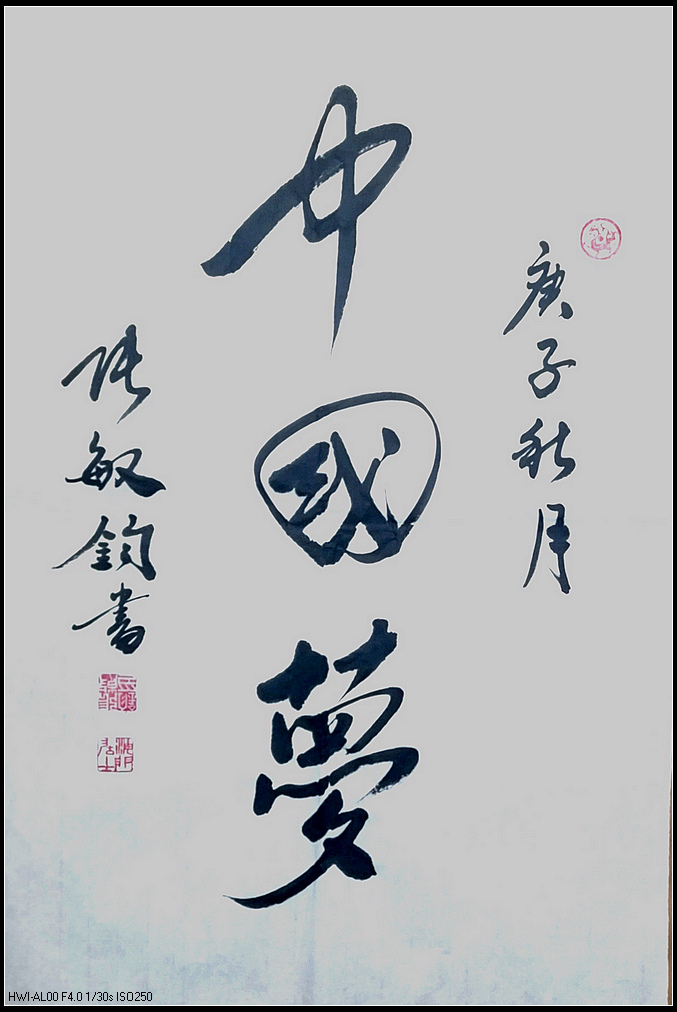 庚子秋月
中國夢
张敏鈞書
HWI-AL00 F4.0 1/30s ISO250